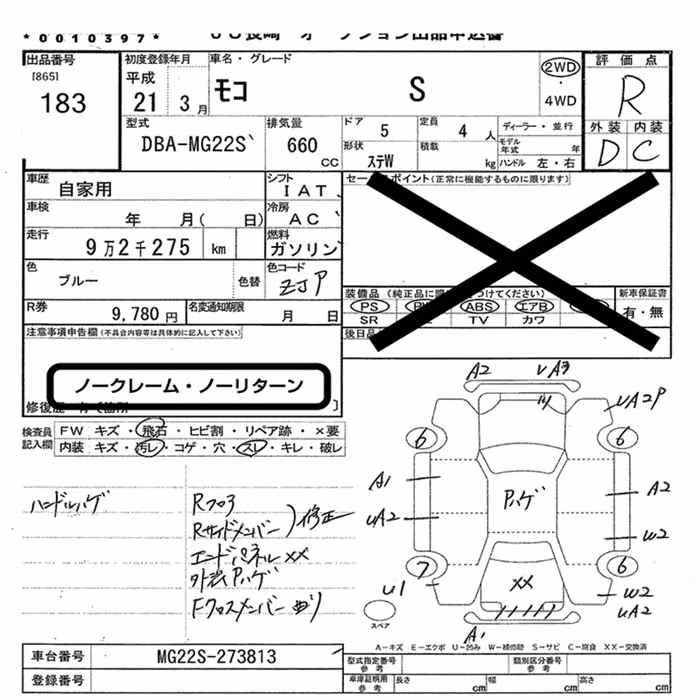 *0010397*
出品番号
[865]
183
初度登録年月
平成
21 3月
車名・グレード
モコ S
2WD
・
4WD
評価点
R
外装 内装
D C
型式
DBA-MG22S
排気量
660
CC
ドア 5
定員 4 人
ディーラー・並行
形状
ステW
積載 kg
モデル年式 年
ハンドル 左・右
車歴
自家用
シフト
IAT
車検
年 月( 日)
冷房
AC
走行
9万2千275 km
燃料
ガソリン
色
ブルー
色替
色コード
ZJP
R券
9,780円
名変通知期限
月 日
セー ポイント(正常に機能するものに限ります)
装備品
PS ABS エアB
SR TV カワ
新車保証書
有・無
後日品
注意事項申告欄(不具合内容等は具体的に記入して下さい)
ノークレーム・ノーリターン
検査員
記入欄
FW キズ・飛石・ヒビ割・リペア跡・×要
内装 キズ・汚レ・コゲ・穴・スレ・キレ・破レ
ハンドルハゲ
Rフロア
Rサイドメンバー)修正
エンドパネルXX
外装Pハゲ
Fクロスメンバー曲り
A2 uA3
uA2P
6 6
A1
uA2
Pハゲ
A2
W2
7 6
u1
XX
W2
uA2
A1
スペア
A-キズ E-エクボ U-凹み W-補修跡 S-サビ C-腐食 XX-交換済
車台番号 MG22S-273813
登録番号
型式指定番号
参考
類別区分番号
参考
車庫証明用
参考
長さ cm 幅 cm 高さ cm